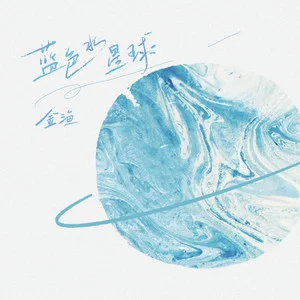 蓝色水星球
金渔